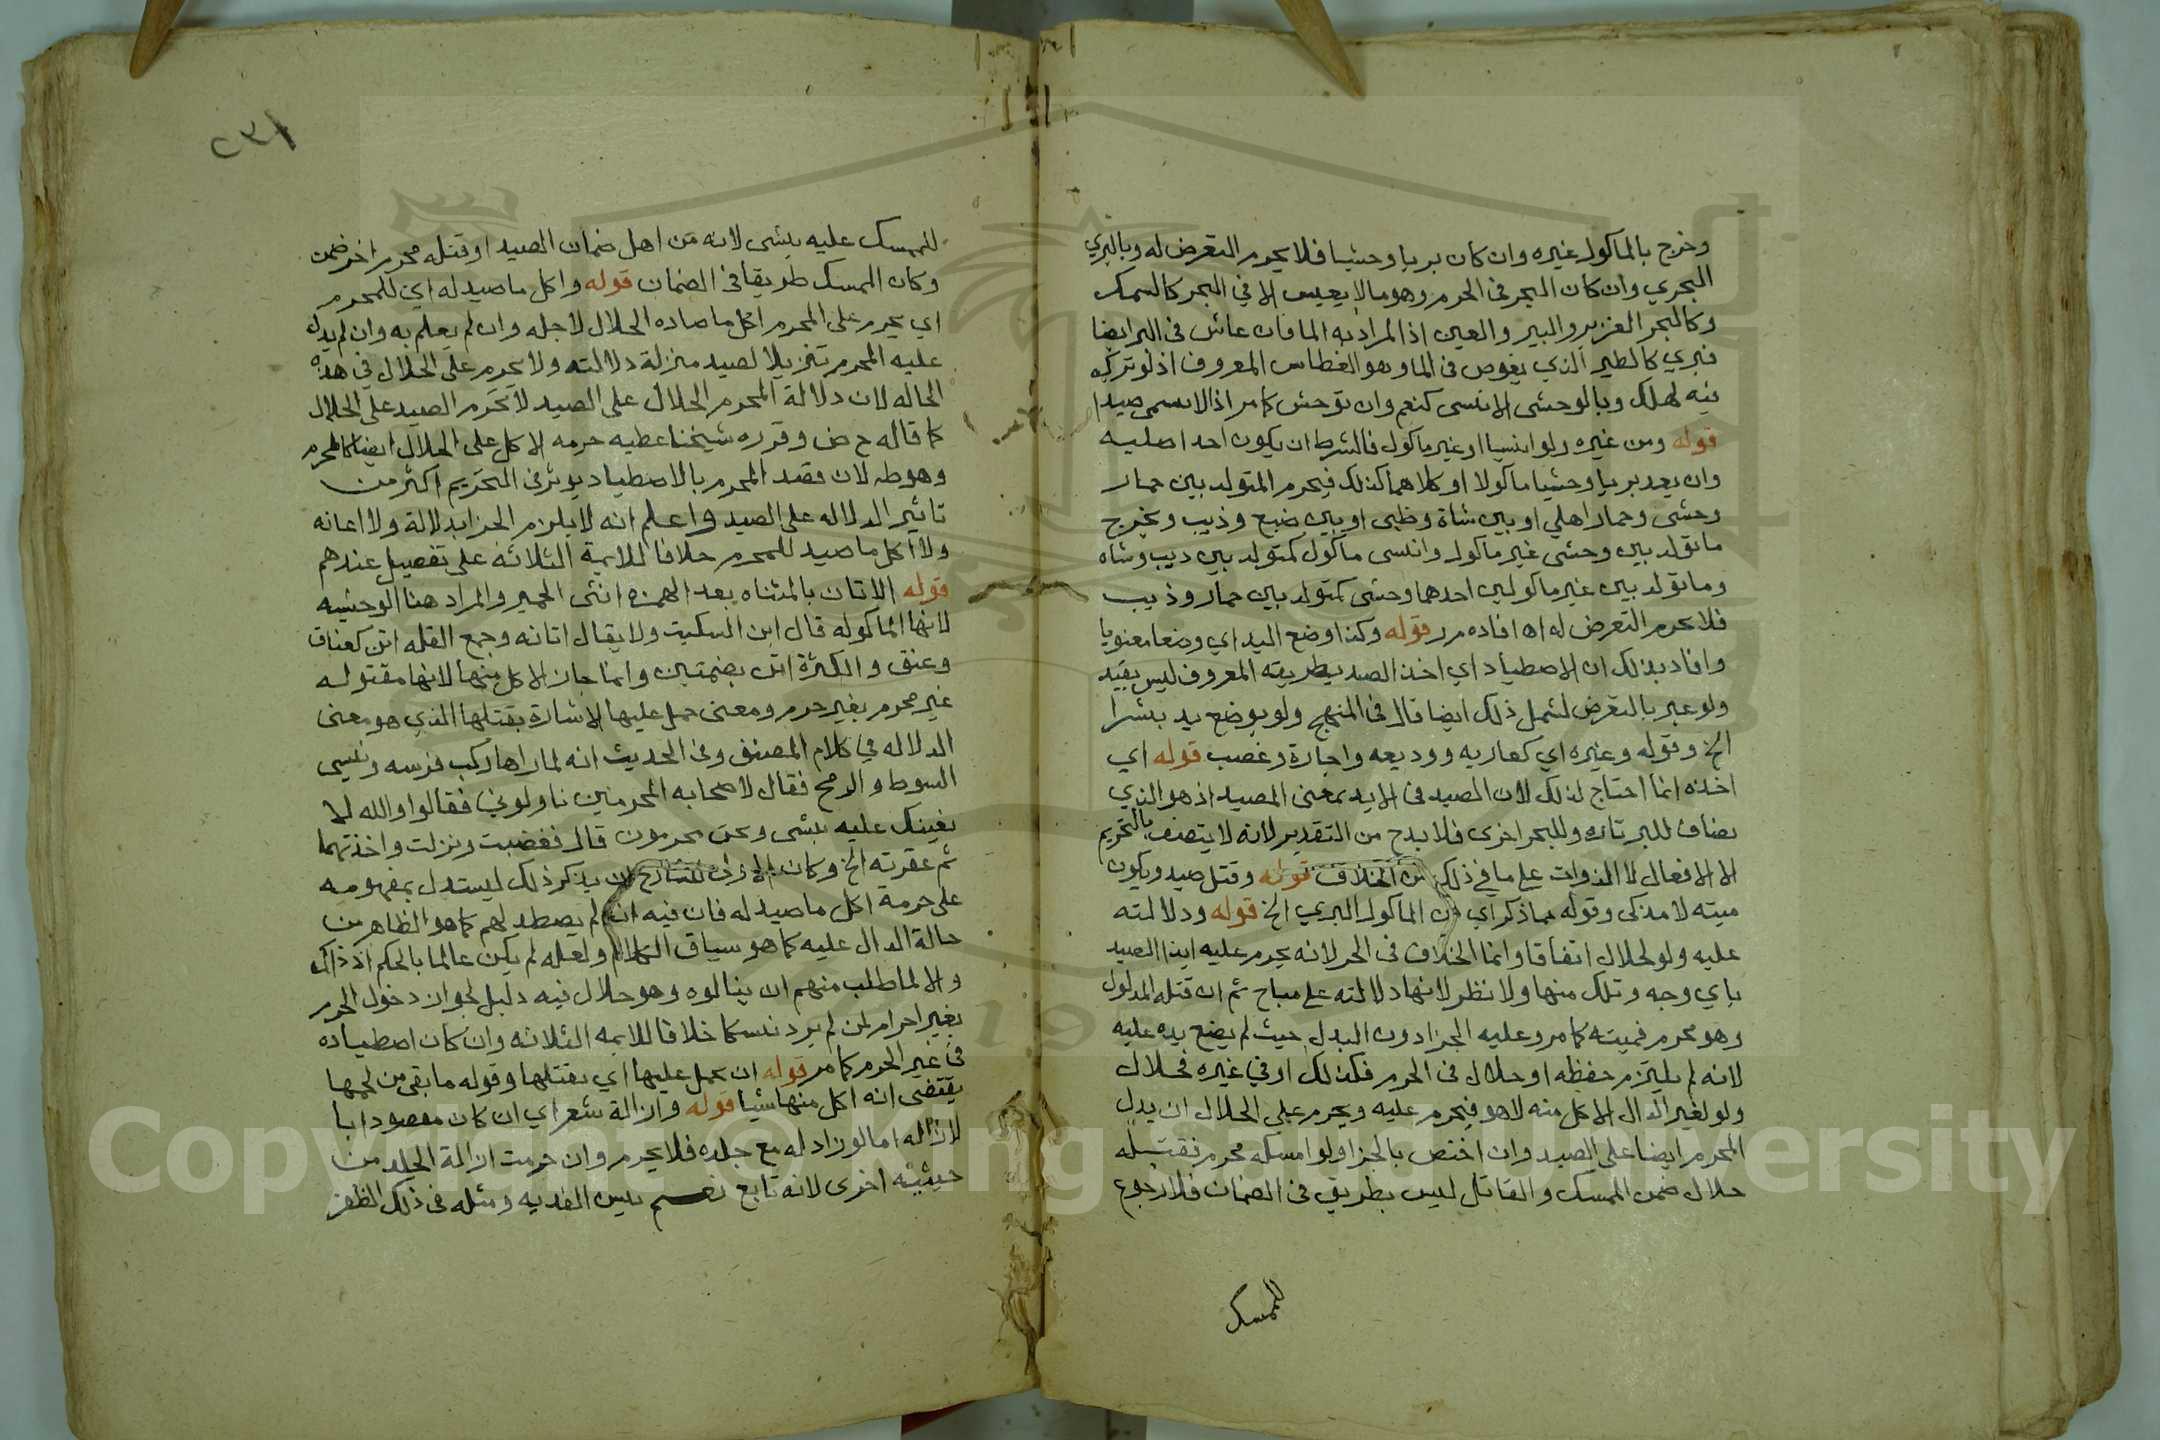 وخرج بالماكول غيره وان كان بريا وحشيا فلا يحرم التعرض له وبالبري
البحري وان كان البحر في الحرم وهو ما لا يعيش الا في البحر كالسمك
وكالبحر الغزير والبير والعين اذ المراد به الما فان عاش في البر ايضا
فبري كالطير الذي يغوص في الما وهو الغطاس المعروف اذ لو ترك
فيه لهلك وبالوحشي الانسي كنعم وان توحش كما مر اذ لا يسمي صيدا
قوله ومن غيره ولو انسيا او غير ماكول فالشرط ان يكون احد اصليه
وان بعد بريا وحشيا ماكولا او كلاهما كذلك فيحرم المتولد بين حمار
وحشي وحمار اهلي او بين شاة وظبي او بين ضبع وذيب ويخرج
ما تولد بين وحشي غير ماكول وانسي ماكول كمتولد بين ذيب وشاه
وما تولد بين غير ماكولين احدهما وحشي كمتولد بين حمار وذيب
فلا يحرم التعرض له اه افاده م ر قوله وكذا وضع اليد اي وضعا معنويا
وافاد بذلك ان الاصطياد اي اخذ الصيد بطريقته المعروف ليس بقيد
ولو عبر بالتعرض لشمل ذلك ايضا قال في المنهج ولو بوضع يد بشرا
الخ وقوله وغيره اي كعاريه ووديعه واجارة وغصب قوله اي
اخذه انما احتاج لذلك لان الصيد في الايد بمعني المصيد اذ هو الذي
يضاف للبر تاره وللبحر اخري فلا بد ح من التقدير لانه لا يتصف بالتحريم
الا الافعال لا الذوات علي ما في ذلك من الخلاف قوله وقتل صيد ويكون
ميته لا مذكي وقوله مما ذكر اي من الماكول البري الخ قوله ودلالته
عليه ولو لحلال اتفاقا وانما الخلاف في الحر لانه يحرم عليه ايذا الصيد
باي وجه وتلك منها ولا نظر لانها دلالته علي مباح ثم ان قتله المدلول
وهو محرم فميته كما مر وعليه الجزا دون البدل حيث لم يضع يده عليه
لانه لم يلتزم حفظه او حلال في الحرم فكذلك او في غيره فحلال
ولو لغير الدال الاكل منه لا هو فيحرم عليه ويحرم علي الحلال ان يدل
المحرم ايضا علي الصيد وان اختص بالجزا ولو امسكه محرم فقتله
حلال ضمن الممسك والقاتل ليس بطريق في الضمان فلا رجوع
للممسك
٢٣١
للممسك عليه بشي لانه من اهل ضمان الصيد او قتله محرم اخر ضمن
وكان الممسك طريقا في الضمان قوله واكل ما صيد له اي للمحرم
اي يحرم علي المحرم اكل ما صاده الحلال لاجله وان لم يعلم به وان لم يدل
عليه المحرم تنزيلا لصيد منزلة دلالته ولا يحرم علي الحلال في هذه
الحاله لان دلالة المحرم الحلال علي الصيد لا تحرم الصيد علي الحلال
كما قاله ح ض وقرره شيخنا عطيه حرمه الاكل علي الحلال ايضا كالمحرم
وهو ط لان قصد المحرم بالاصطياد يوثر في التحريم اكثر من
تاثير الدلاله علي الصيد واعلم انه لا يلزم الجزا بدلالة ولا اعانه
ولا اكل ما صيد للمحرم خلافا للايمة الثلاثة علي تفصيل عندهم
قوله الاتان بالمثناه بعد الهمزه انثي الحمير والمراد هنا الوحشيه
لانها الماكوله قال ابن السكيت ولا يقال اتانه وجمع القله اتن كعناق
وعنق والكثرة اتن بضمتين وانما جاز الاكل منها لانها مقتوله
غير محرم بغير حرم ومعني حمل عليها الاشارة بقتلها الذي هو معني
الدلاله في كلام المصنف وفي الحديث انه لما راها ركب فرسه ونسي
السوط والرمح فقال لاصحابه المحرمين ناولوني فقالوا والله لا
نعينك عليه بشي ونحن محرمون قال فغضبت ونزلت واخذتهما
ثم عقرته الخ وكان للشارح ان يذكر ذلك ليستدل بمفهومه
علي حرمة اكل ما صيد له فان فيه انه لم يصطد لهم كما هو الظاهر من
حالة الدال عليه كما هو سياق الكلام ولعله لم يكن عالما بالحكم اذ ذاك
والا لما طلب منهم ان ينالوه وهو حلال فيه دليل لجواز دخول الحرم
بغير احرام لمن لم يرد نسكا خلافا للايمه الثلاثه وان كان اصطياده
في غير الحرم كما مر قوله ان يحمل عليها اي بقتلها وقوله ما بقي من لحمها
يقتضي انه اكل منها شيا قوله وازالة شعر اي ان كان مقصودا با
لازاله اما لو زاد له مع جلده فلا يحرم وان حرمت ازالة الجلد من
حيثيه اخري لانه تابع نعم تسن الفديه ومثله في ذلك الظفر
Copyright © King Saud University